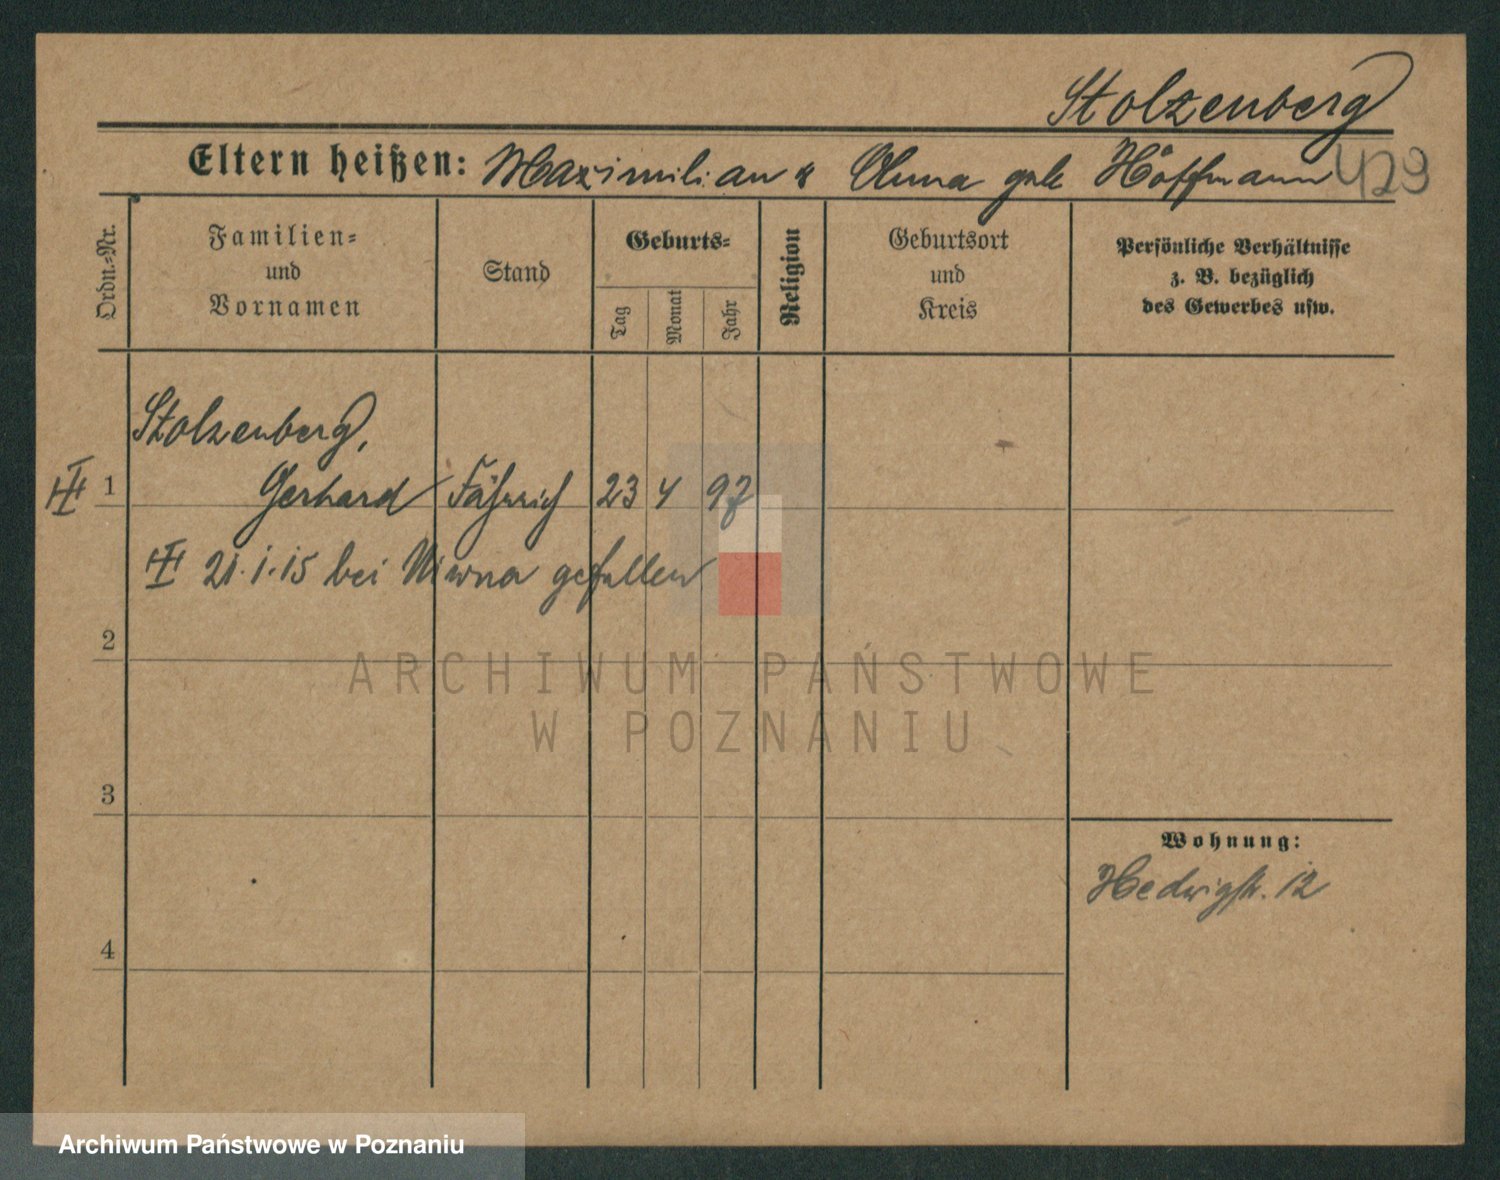 Stolzenberg
Eltern heißen: Maximilian & Anna geb. Hoffmann
429
Ordn.-Nr.
Familien-
und
Vornamen
Stand
Geburts-
Tag
Monat
Jahr
Religion
Geburtsort
und
Kreis
Persönliche Verhältnisse
z. B. bezüglich
des Gewerbes usw.
Stolzenberg,
1 Gerhard Fähnrich 23 4 97
21.1.15 bei gefallen
2
3
4
Wohnung:
Hedwigstr. 12
ARCHIWUM PAŃSTWOWE
W POZNANIU
Archiwum Państwowe w Poznaniu